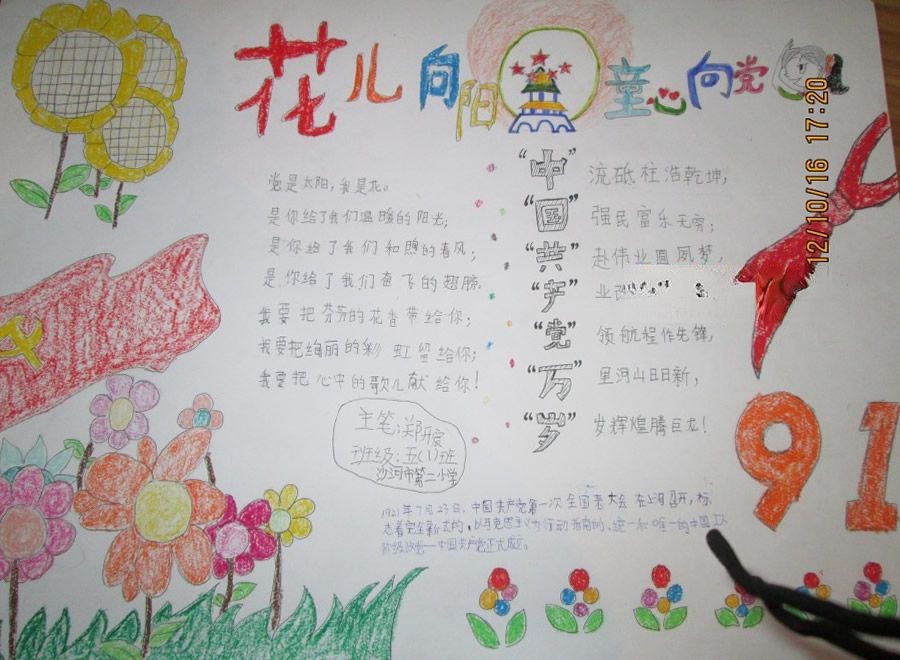 花儿向阳 童心向党
12/10/16 17:20
党是太阳,我是花。
是你给了我们温暖的阳光;
是你给了我们和煦的春风;
是你给了我们奋飞的翅膀。
我要把芬芳的花香带给你;
我要把绚丽的彩虹留给你;
我要把心中的歌儿献给你!
"中"流砥柱浩乾坤,
"国"强民富乐无穷;
"共"赴伟业圆夙梦,
"产"业
"党"领航程作先锋,
"万"里河山日日新,
"岁"岁辉煌腾巨龙!
主笔:郑
班级:五(1)班
沙河市第二小学
91
1921年7月23日,中国共产党第一次全国代大会在上海召开,标
志着完全新式的,以马克思主义为行动指南的,统一和唯一的中国工人
阶级政党——中国共产党正式成立。